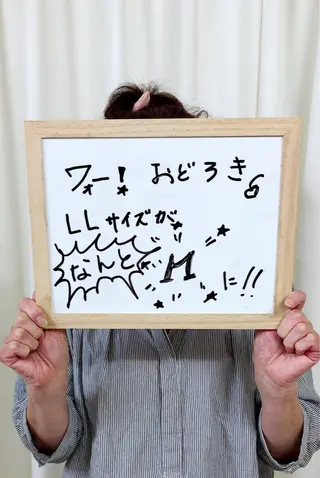 ワォー! おどろき
LLサイズが
なんと M に!!